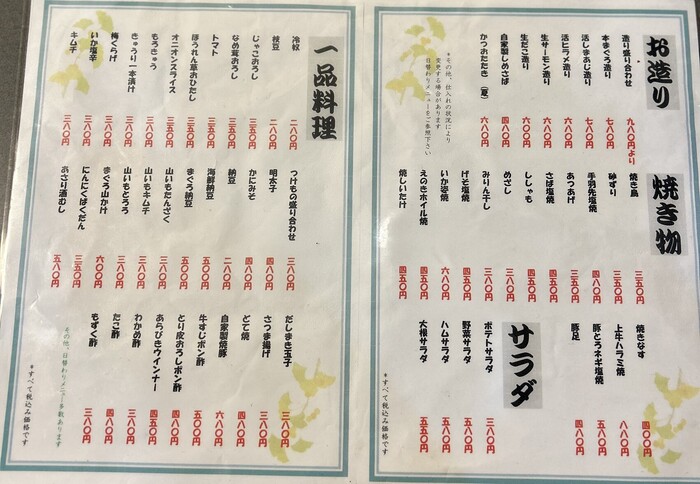 お造り
造り盛り合わせ 九八〇円より
本まぐろ造り 七八〇円
活しまあじ造り 七八〇円
活ヒラメ造り 六八〇円
生サーモン造り 六八〇円
生だこ造り 六八〇円
自家製しめさば 四八〇円
かつおたたき(夏) 六八〇円
*その他、仕入れの状況により
変更する場合があります
日替わりメニューをご参照下さい
焼き物
焼き鳥 三五〇円
砂ずり 三五〇円
手羽先塩焼 四八〇円
あつあげ 三五〇円
さば塩焼 四五〇円
ししゃも 四五〇円
めざし 三八〇円
みりん干し 三八〇円
げそ塩焼 四五〇円
いか姿焼 六八〇円
えのきホイル焼 四五〇円
焼しいたけ 四五〇円
焼きなす 四〇〇円
上牛ハラミ焼 八八〇円
豚とろネギ塩焼 五八〇円
豚足 四八〇円
サラダ
ポテトサラダ 三八〇円
野菜サラダ 四八〇円
ハムサラダ 五八〇円
大根サラダ 五五〇円
*すべて税込み価格です
一品料理
冷奴 二八〇円
枝豆 二八〇円
じゃこおろし 三五〇円
なめ茸おろし 三五〇円
トマト 三八〇円
ほうれん草おひたし 三五〇円
オニオンスライス 三五〇円
もろきゅう 三八〇円
きゅうり一本漬け 三八〇円
梅くらげ 三八〇円
いか塩辛 三八〇円
キムチ 三八〇円
つけもの盛り合わせ 三八〇円
明太子 四八〇円
かにみそ 四八〇円
納豆 二八〇円
海鮮納豆 五八〇円
まぐろ納豆 五〇〇円
山いもたんざく 三八〇円
山いもキムチ 三八〇円
山いもとろろ 三八〇円
まぐろ山かけ 六〇〇円
にんにくばくだん 三五〇円
あさり酒むし 五八〇円
だしまき玉子 三八〇円
さつま揚げ 三八〇円
どて焼 四八〇円
自家製焼豚 六八〇円
牛すじポン酢 五〇〇円
とり皮おろしポン酢 四八〇円
あらびきウインナー 四五〇円
わかめ酢 三八〇円
たこ酢 四八〇円
もずく酢 三八〇円
その他、日替わりメニュー多数あります
*すべて税込み価格です